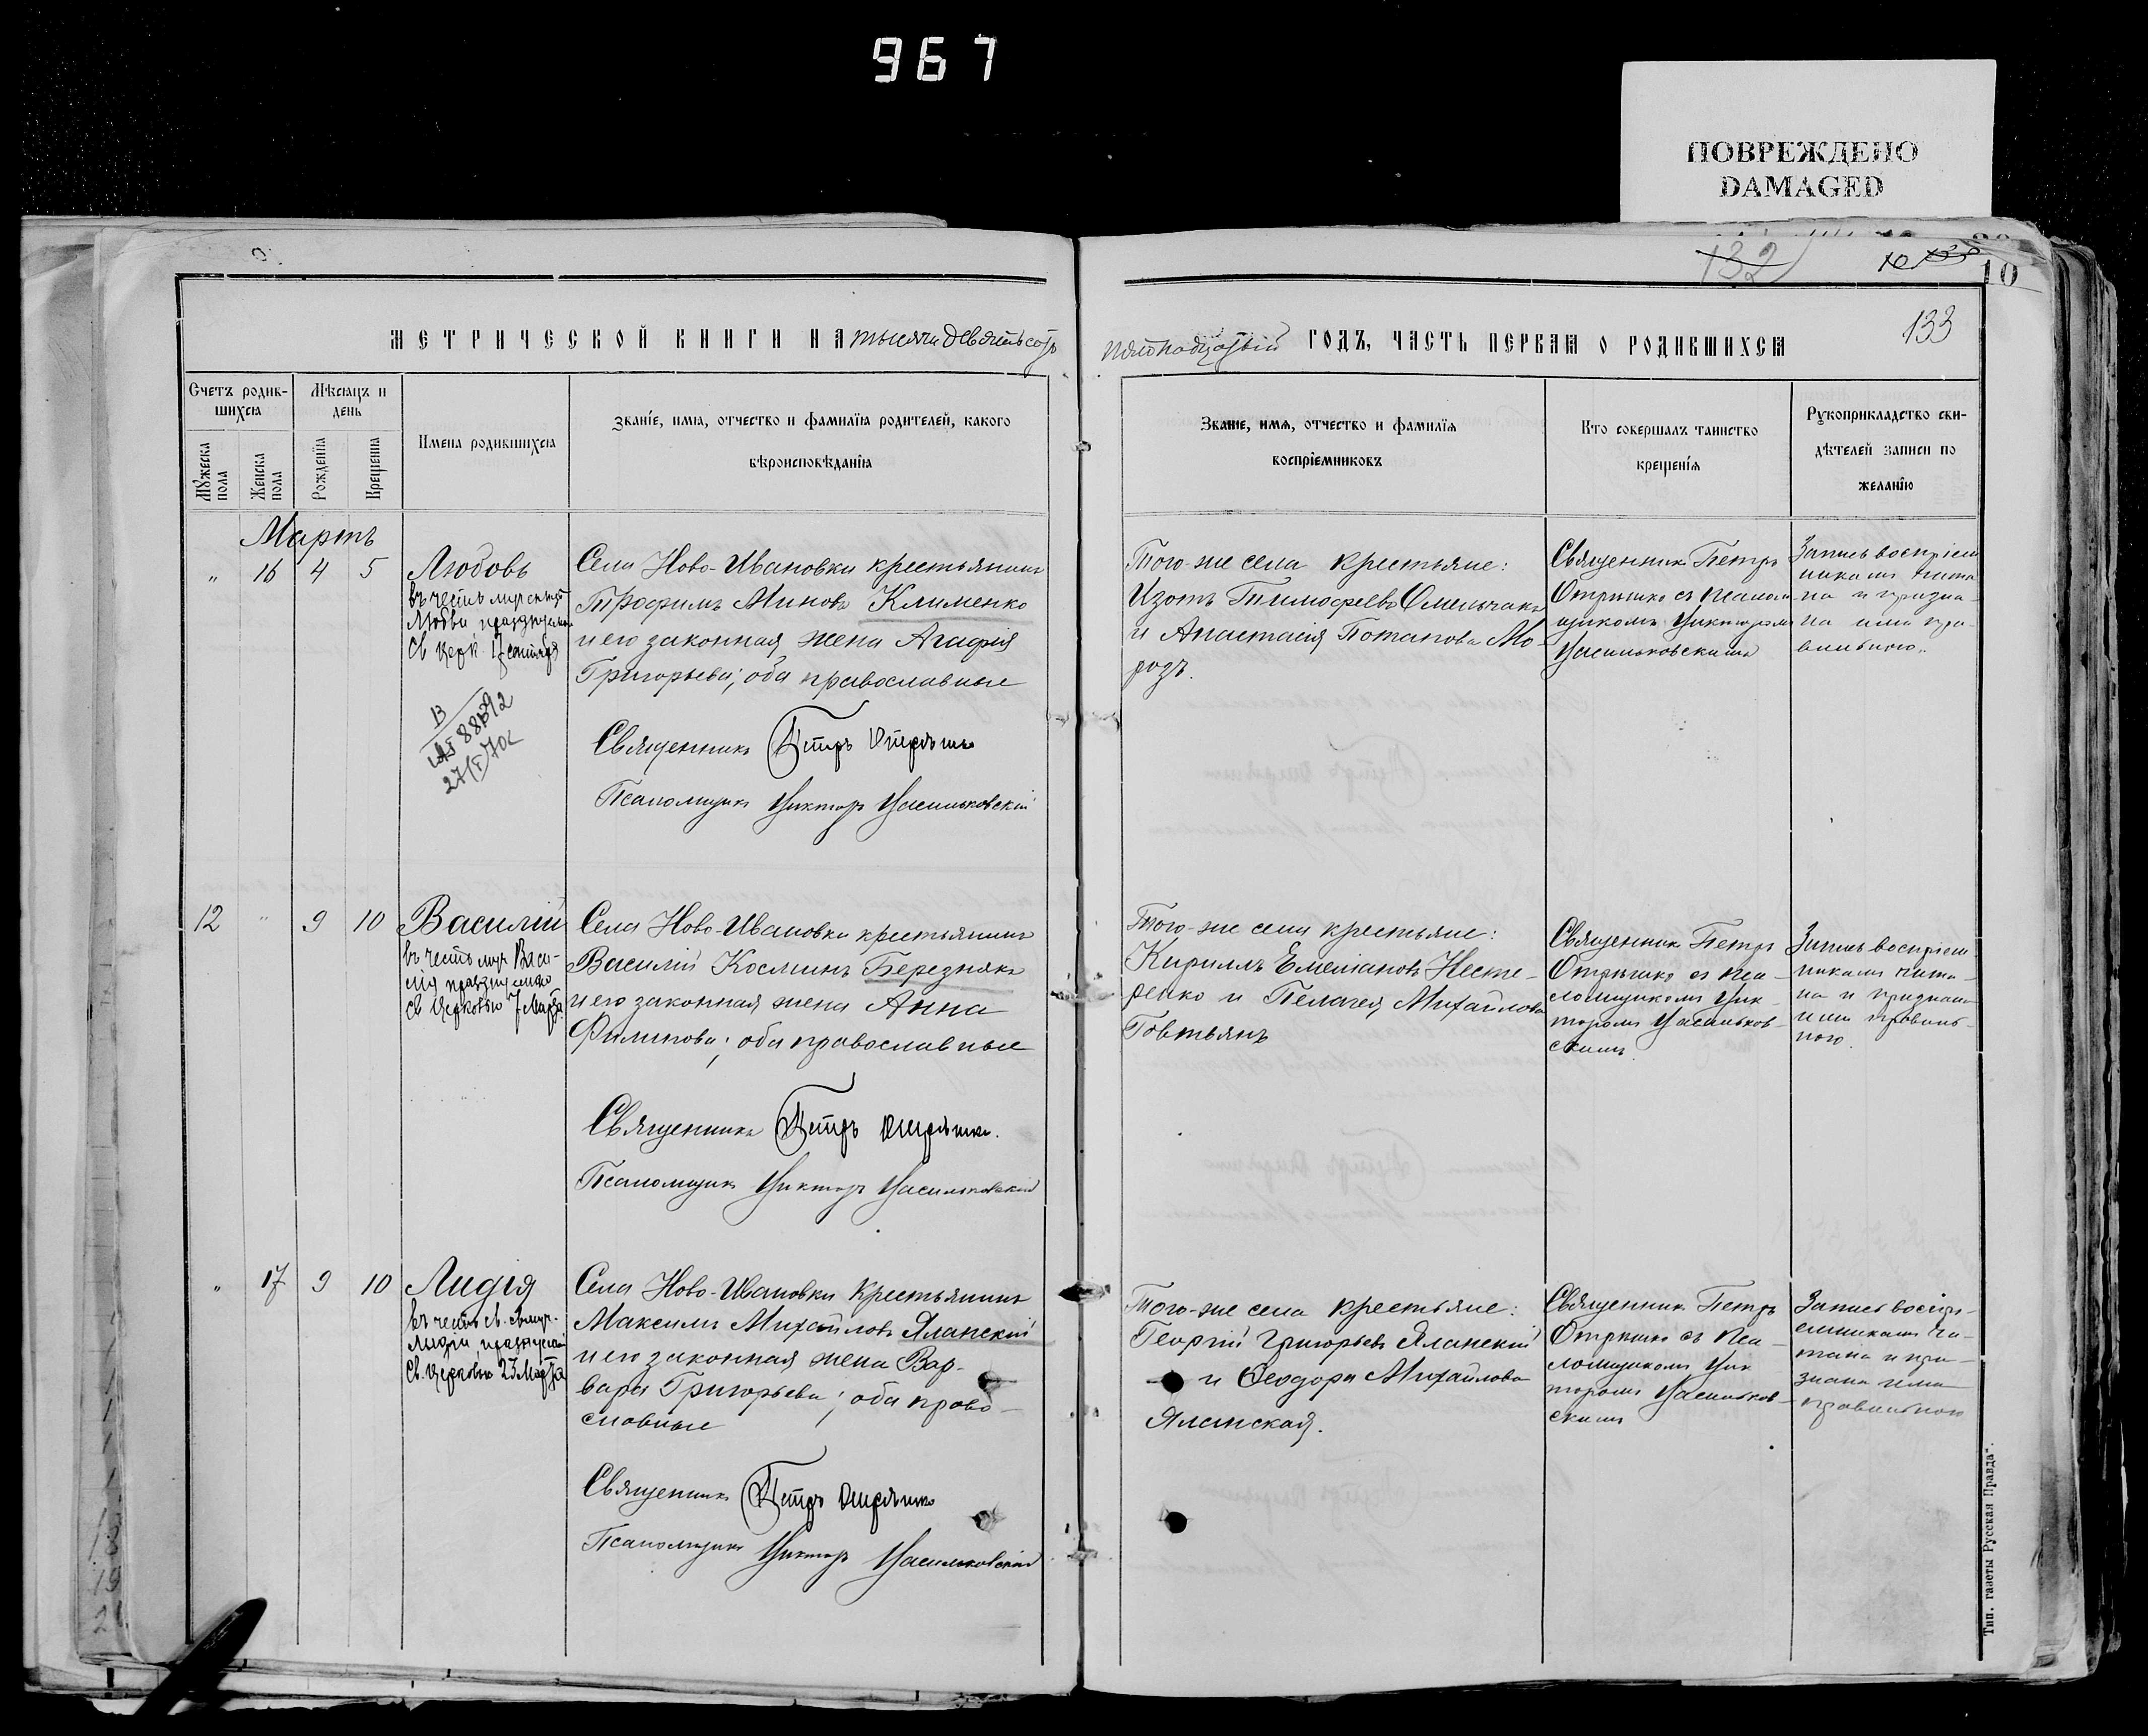 967
ПОВРЕЖДЕНО
DAMAGED
132
10
133
МЕТРИЧЕСКОЙ КНИГИ НА тысяча девятьсотъ
пятнадцатый ГОДЪ, ЧАСТЬ ПЕРВАЯ О РОДИВШИХСЯ
Счетъ родив-
шихся
Мужеска пола
Женска пола
Мѣсяцъ и
день
Рожденія
Крещенія
Имена родившихся
Званіе, имя, отчество и фамилія родителей, какого
вѣроисповѣданія
Званіе, имя, отчество и фамилія
воспріемниковъ
Кто совершалъ таинство
крещенія
Рукоприкладство сви-
дѣтелей записи по
желанію
Мартъ
" 16 4 5
Любовь
въ честь
Любви
Св церк 17 сентября
В
27/I 70г
Села Ново-Ивановки крестьянинъ
Трофимъ Миновъ Клименко
и его законная жена Агафія
Григорьева; оба православные
Священникъ Петръ Отрѣшко
Псаломщикъ Викторъ Васильковскій
Того-же села крестьяне:
Изотъ Тимофеевъ Омельчакъ
и Анастасія Потапова Мо-
розъ.
Священникъ Петръ
Отрѣшко съ псалом-
щикомъ Викторомъ
Васильковскимъ
Запись воспріем
никамъ чита
на и призна-
на ими пра-
вильною.
12 " 9 10
Василій
въ честь муч Васи-
лія празднуемаго
Св Церковью 7 Марта
Села Ново-Ивановки крестьянинъ
Василій Косминъ Березнякъ
и его законная жена Анна
Филипова; оба православные
Священникъ Петръ Отрѣшко.
Псаломщикъ Викторъ Васильковскій
Того-же села крестьяне:
Кириллъ Емельяновъ Несте-
ренко и Пелагея Михайлова
Говтьянъ
Священникъ Петръ
Отрѣшко съ пса-
ломщикомъ Вик-
торомъ Васильков-
скимъ
Запись воспріем-
никамъ чита-
на и признана
ими правиль-
ною.
" 17 9 10
Лидія
въ честь св. муч.
Лидіи, празднуемой
Св. Церковью 23 Марта
Села Ново-Ивановки крестьянинъ
Максимъ Михайловъ Яланскій
и его законная жена Вар-
вара Григорьева; оба право-
славные
Священникъ Петръ Отрѣшко
Псаломщикъ Викторъ Васильковскій
Того-же села крестьяне:
Георгій Григорьевъ Яланскій
и Ѳеодора Михайлова
Яланская.
Священникъ Петръ
Отрѣшко съ пса-
ломщикомъ Вик
торомъ Васильков-
скимъ
Запись воспрі-
емникамъ чи-
тана и при-
знана ими
правильною
Тип. газеты Русская Правда".